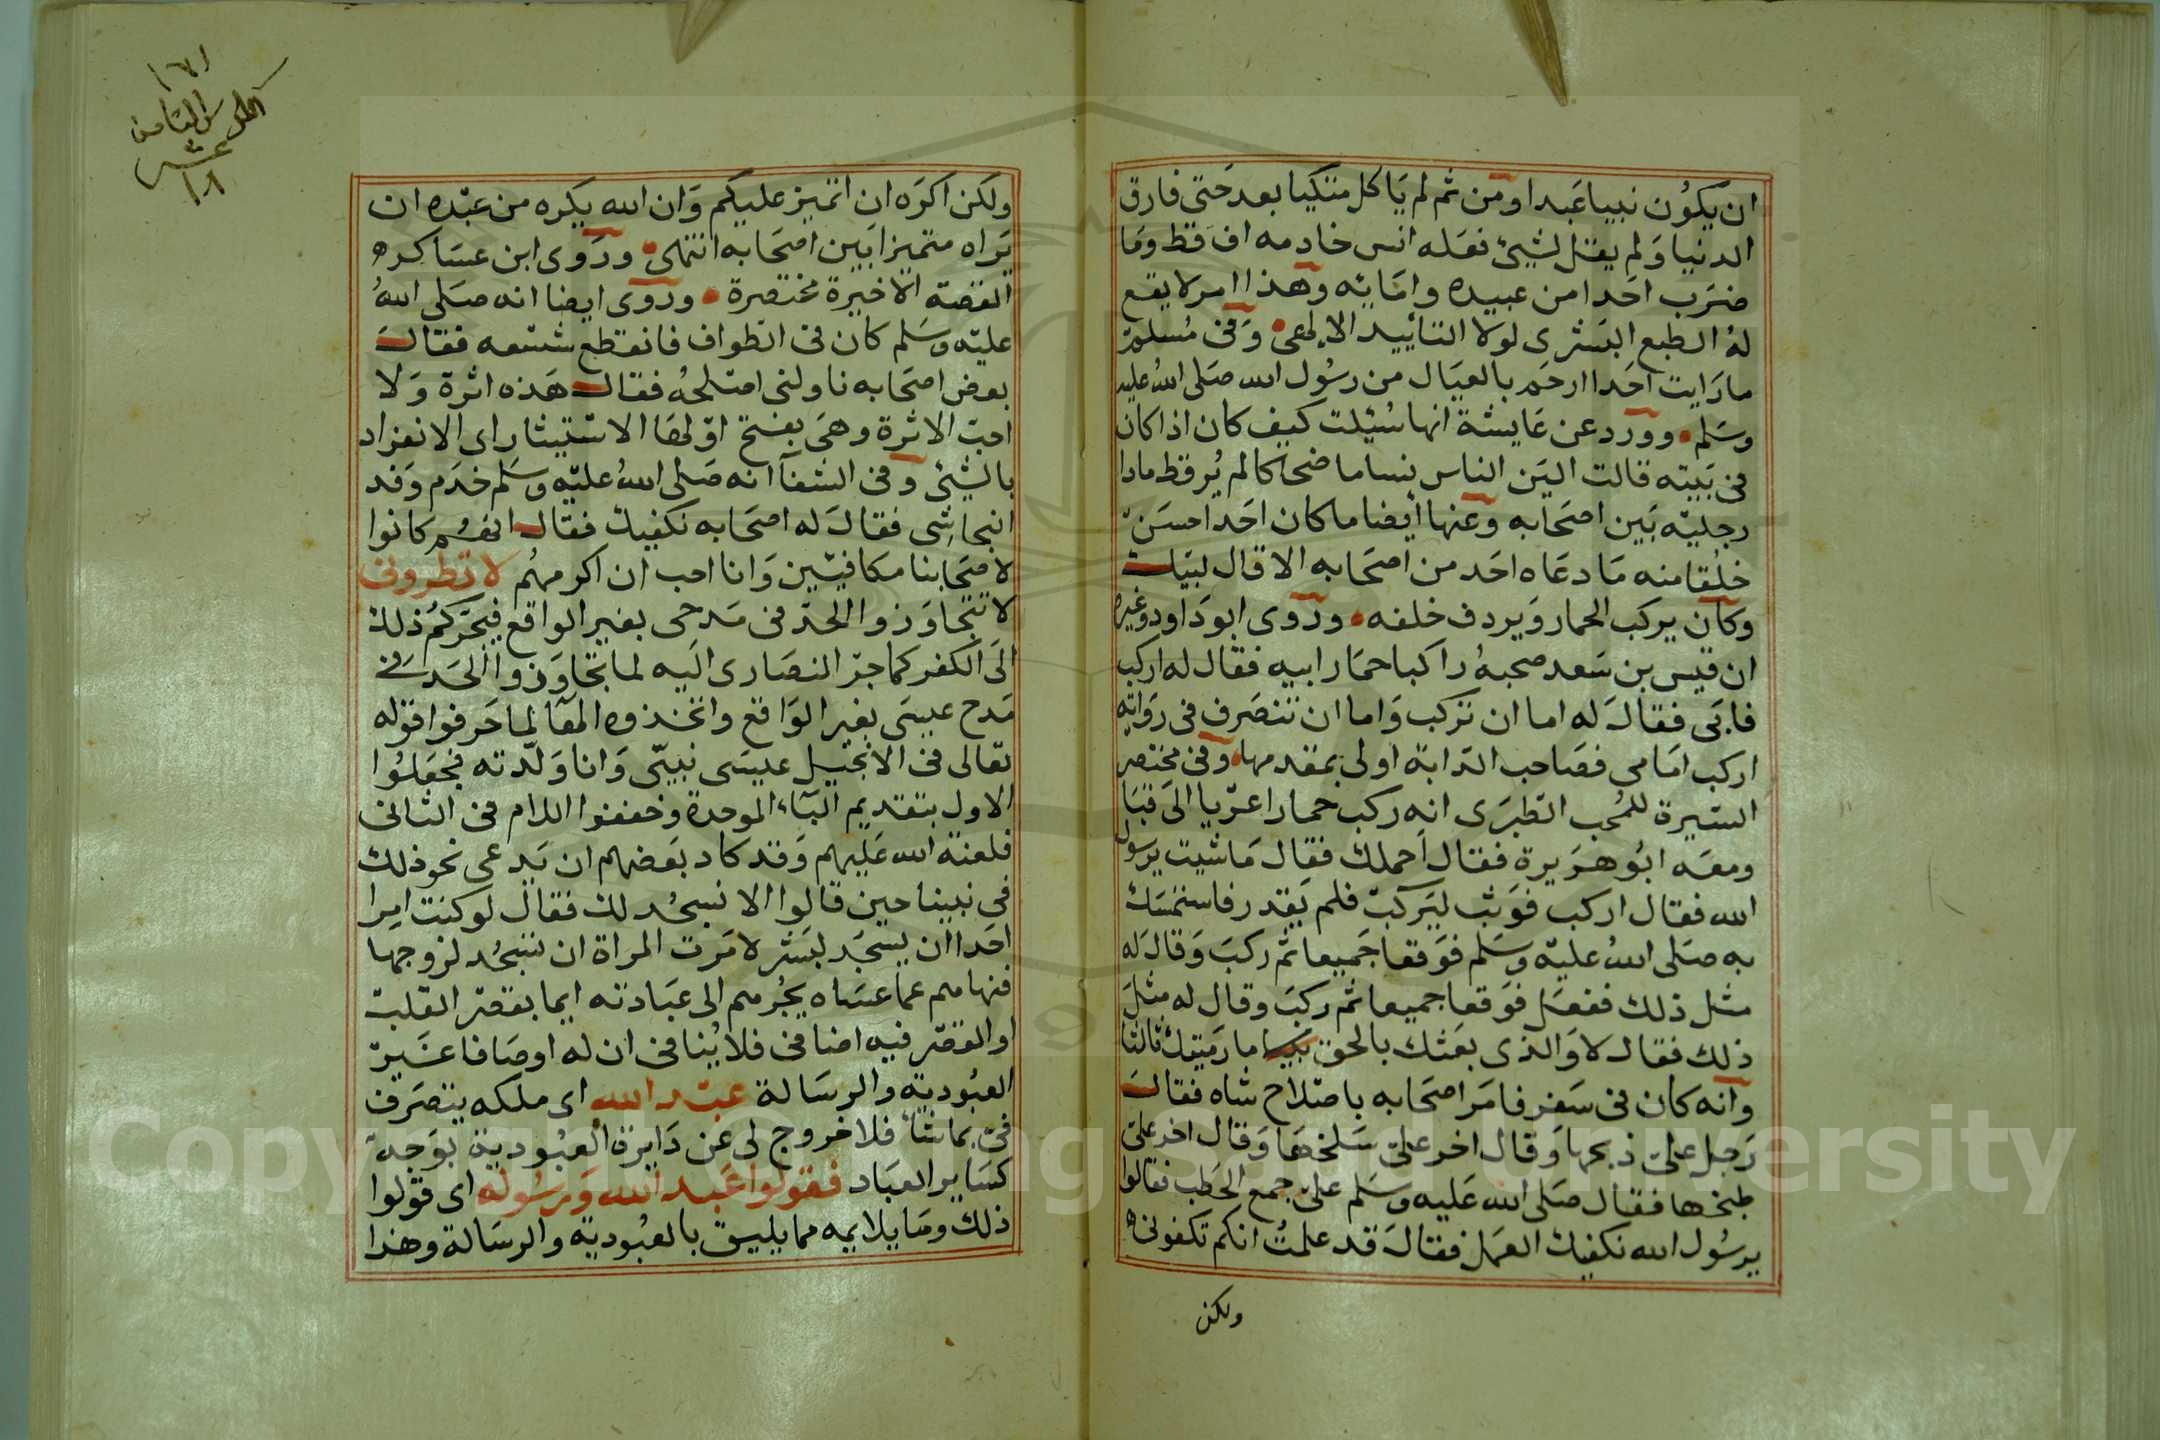 ان يكون نبيا عبدا ومن ثم لم ياكل متكيا بعد حتى فارق
الدنيا ولم يقل لشيئ فعله انس خادمه اف قط وما
ضرب احدا من عبيده وامايه وهذا امر لا يقع
له الطبع البشرى لولا التاييد الالهى وفى مسلم
ما رايت احدا ارحم بالعيال من رسول الله صلى الله عليه
وسلم وورد عن عايشة انها سئلت كيف كان اذا كان
فى بيته قالت الين الناس بساما ضحاكا لم ير قط مادا
رجليه بين اصحابه وعنها ايضا ما كان احد احسن
خلقا منه ما دعاه احد من اصحابه الا قال لبيك
وكان يركب الحمار ويردف خلفه وروى ابو داود وغيره
ان قيس بن سعد صحبه راكبا حمار ابيه فقال له اركب
فابى فقال له اما ان تركب واما ان تنصرف فى رواية
اركب امامى فصاحب الدابة اولى بمقدمها وفى مختصر
السيرة للمحب الطبرى انه ركب حمارا عريا الى قبا
ومعه ابو هريرة فقال احملك فقال ما شيت يرسول
الله فقال اركب فوثب ليركب فلم يقدر فاستمسك
به صلى الله عليه وسلم فوقعا جميعا ثم ركب وقال له
مثل ذلك ففعل فوقعا جميعا ثم ركب وقال له مثل
ذلك فقال لا والذى بعثك بالحق نبيا ما رميتك ثالثا
وانه كان فى سفر فامر اصحابه باصلاح شاه فقال
رجل على ذبحها وقال اخر على سلخها وقال اخر على
طبخها فقال صلى الله عليه وسلم على جمع الحطب فقالوا
يرسول الله نكفيك العمل فقال قد علمت انكم تكفونى
ولكن
١٧١
الكراس الثامن
عشر
١٨
ولكن اكره ان اتميز عليكم وان الله يكره من عبده ان
يراه متميزا بين اصحابه انتهى وروى ابن عساكر
القصة الاخيرة مختصرة وروى ايضا انه صلى الله
عليه وسلم كان فى الطواف فانقطع شسعه فقال
بعض اصحابه ناولنى اصلحه فقال هذه اثرة ولا
احب الاثرة وهى بفتح اولها الاستيثار اى الانفراد
بالشيئ وفى الشفآ انه صلى الله عليه وسلم خدم وفد
النجاشى فقال له اصحابه نكفيك فقال انهم كانوا
لاصحابنا مكافيين وانا احب ان اكرمهم لا تطرونى
لا تتجاوزوا الحد فى مدحى بغير الواقع فيجركم ذلك
الى الكفر كما جر النصارى اليه لما تجاوزوا الحد فى
مدح عيسى بغير الواقع واتخذوه الها لما حرفوا قوله
تعالى فى الانجيل عيسى نبيى وانا ولدته فجعلوا
الاول بتقديم البآء الموحدة وخففوا اللام فى الثانى
فلعنة الله عليهم وقد كاد بعضهم ان يدعى نحو ذلك
فى نبينا حين قالوا الا نسجد لك فقال لو كنت امرا
احدا ان يسجد لبشر لامرت المراة ان تسجد لزوجها
فنهاهم عما عساه يجرهم الى عبادته ايما بقصر القلب
او القصر فيه اضافى فلا ينافى ان له اوصافا غير
العبودية والرسالة عبد الله اى ملكه يتصرف
فى بما شآء فلا خروج لى عن دايرة العبودية بوجه
كساير العباد فقولوا عبد الله ورسوله اى قولوا
ذلك وما يلايمه مما يليق بالعبودية والرسالة وهذا
Copyright © King Saud University